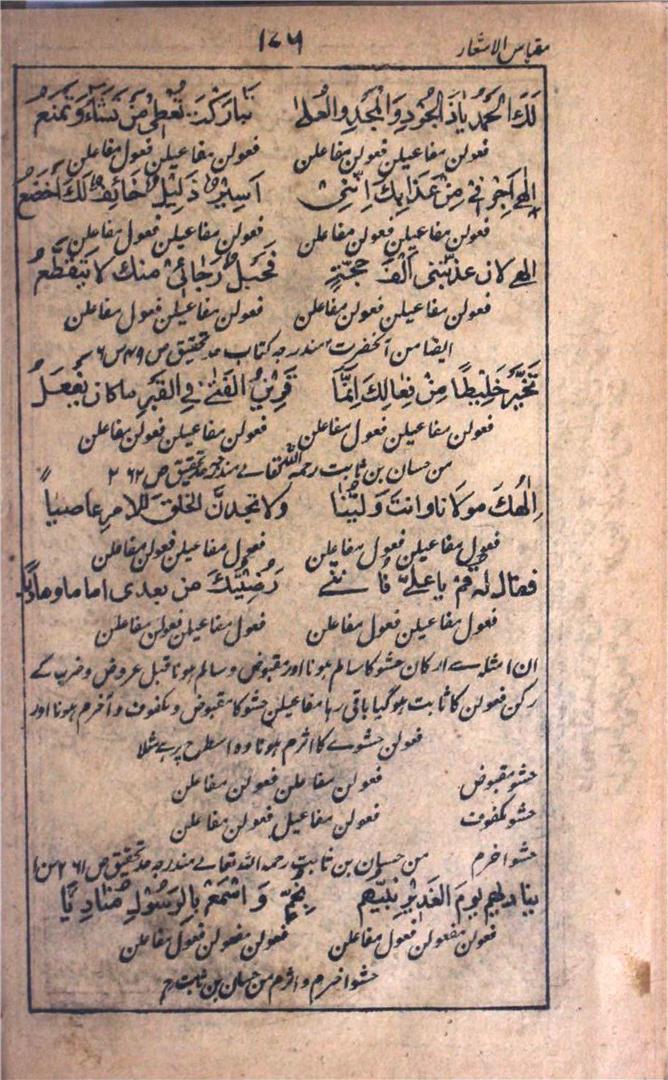 مقباس الاشعار ۱۷۵
لَكَ الحَمدُ یاذَ الجُودِ وَالمَجدِ والعُلیٰ تبارکتَ تُعطِی مَن تَشَاءُ وَتَمنَعُ
فعولن مفاعیلن فعولن مفاعلن فعولن مفاعیلن فعول مفاعلن
اِلٰهی اَجِرنی مِن عَذابِكَ اِنَّنِی اَسِیرٌ ذَلِیلٌ خائِفٌ لَكَ اَخضَعُ
فعولن مفاعیلن فعول مفاعلن فعولن مفاعیلن فعول مفاعلن
الهی لان عذبتنی اَلفَ حجّةٍ فَحَبلُ رَجائی منك لا یتقطّعُ
فعولن مفاعیلن فعولن مفاعلن فعولن مفاعیلن فعول مفاعلن
ایضا من آنحضرت مندرجہ کتاب حد تحقیق ص ۴۹ س ۶
تَخَیَّر خَلِیطًا مِن فِعالِكَ اِنَّمَا قَرِینُ الفَتیٰ فِی القَبرِ ماکان یَفعَلُ
فعولن مفاعیلن فعول مفاعلن فعولن مفاعیلن فعولن مفاعلن
من حسان بن ثابت رحمہ اللہ تعالے مندرجہ حد تحقیق ص ۲۶۲
اِلٰهُكَ مولانا وانتَ وَلیّنَا ولا تجدنَّ الخلق للامرِ عاصیاً
فعول مفاعیلن فعول مفاعلن فعول مفاعیلن فعولن مفاعلن
فقال لَهُ قُم یاعلیّ فاننی رَضِیتُكَ من بعدی اماما وهادیا
فعول مفاعیلن فعول مفاعلن فعول مفاعیلن فعولن مفاعلن
ان امثلہ سے ارکان حشو کا سالم ہونا اور مقبوض و سالم ہونا قبل عروض و ضرب کے
رکن فعولن کا ثابت ہوگیا باقی رہا مفاعیلن حشو کا مقبوض و مکفوف و أخرم ہونا اور
فعولن حشوے کا اثرم ہونا وہ اسطرح پر ہے مثلا
حشو مقبوض فعولن مفاعلن فعولن مفاعلن
حشو مکفوف فعولن مفاعیل فعولن مفاعلن
حشو اخرم من حسان بن ثابت رحمہ اللہ تعالے مندرجہ حد تحقیق ص ۲۶۱
ینادیهم یومَ الغَدیرِ نبیّهم بِخُمٍّ وَ اسْمَعْ بِالرَسُولِ مُنادِیًا
فعولن مفعولن فعول مفاعلن فعولن مفعولن فعول مفاعلن
حشو اخرم و اثرم من حسان بن ثابت رح